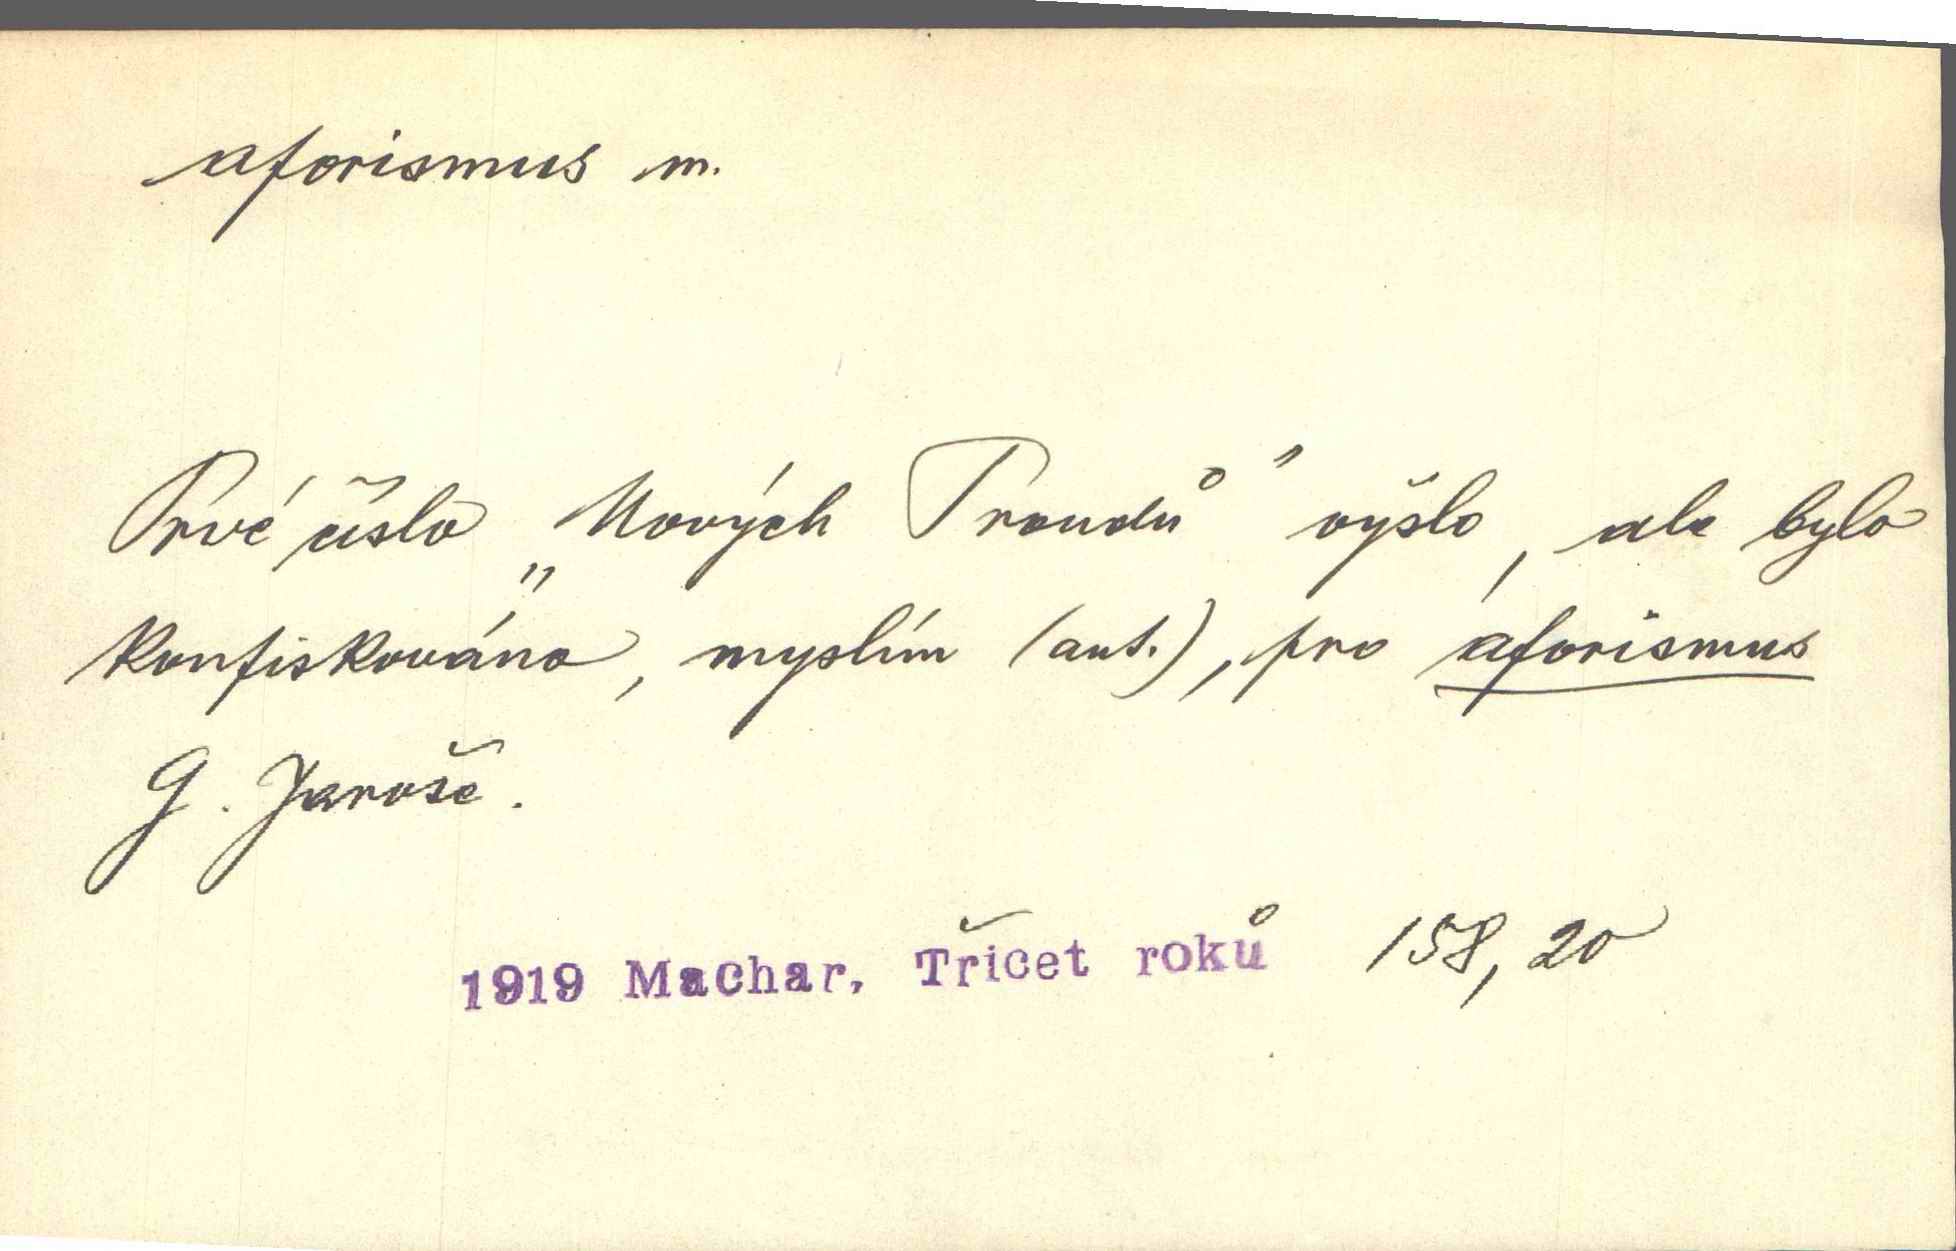 aforismus m.
Prvé číslo „Nových Proudů" vyšlo, ale bylo
konfiskováno, myslím (aut.), pro aforismus
G. Jaroše.
1919 Machar, Třicet roků 158, 20